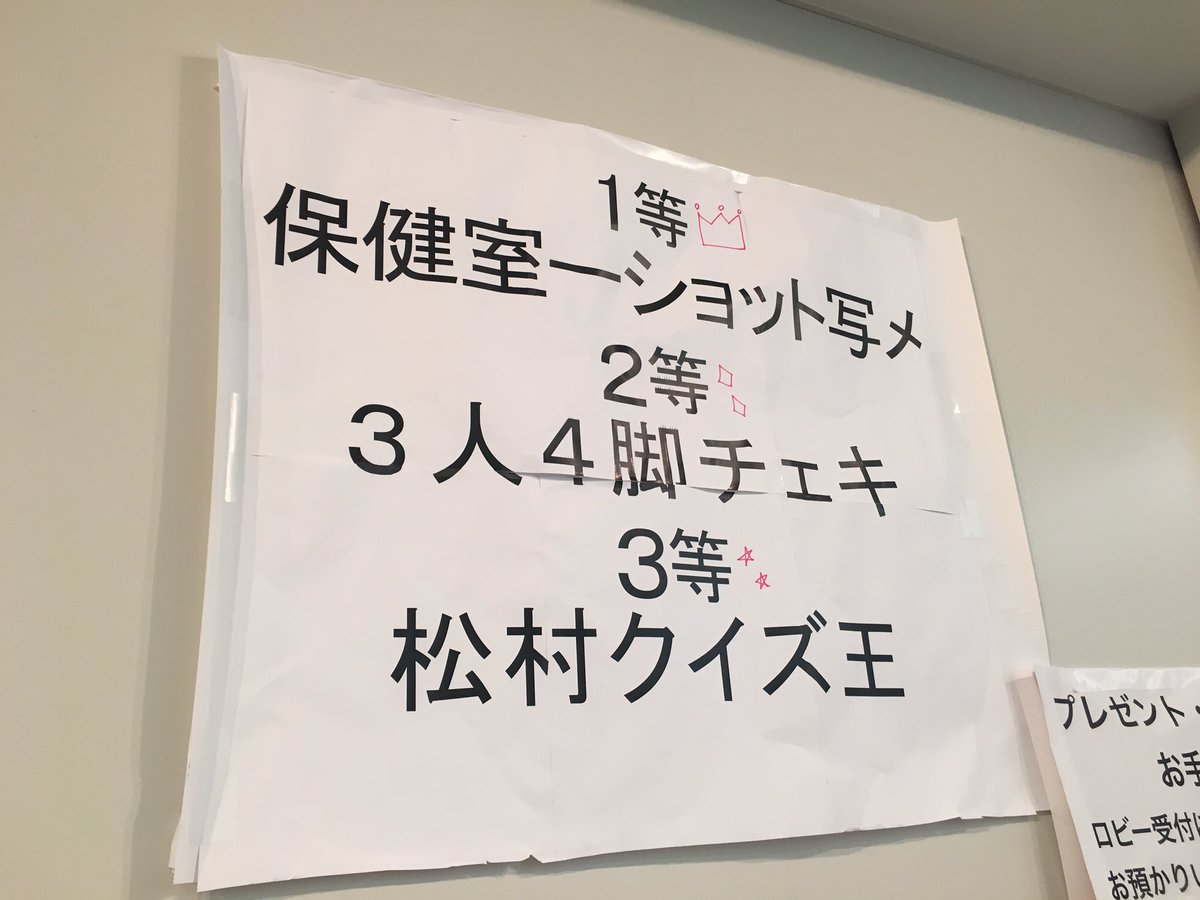 1等
保健室一ショット写メ
2等
3人4脚チェキ
3等
松村クイズ王
プレゼント・
お手
ロビー受付に
お預かりい